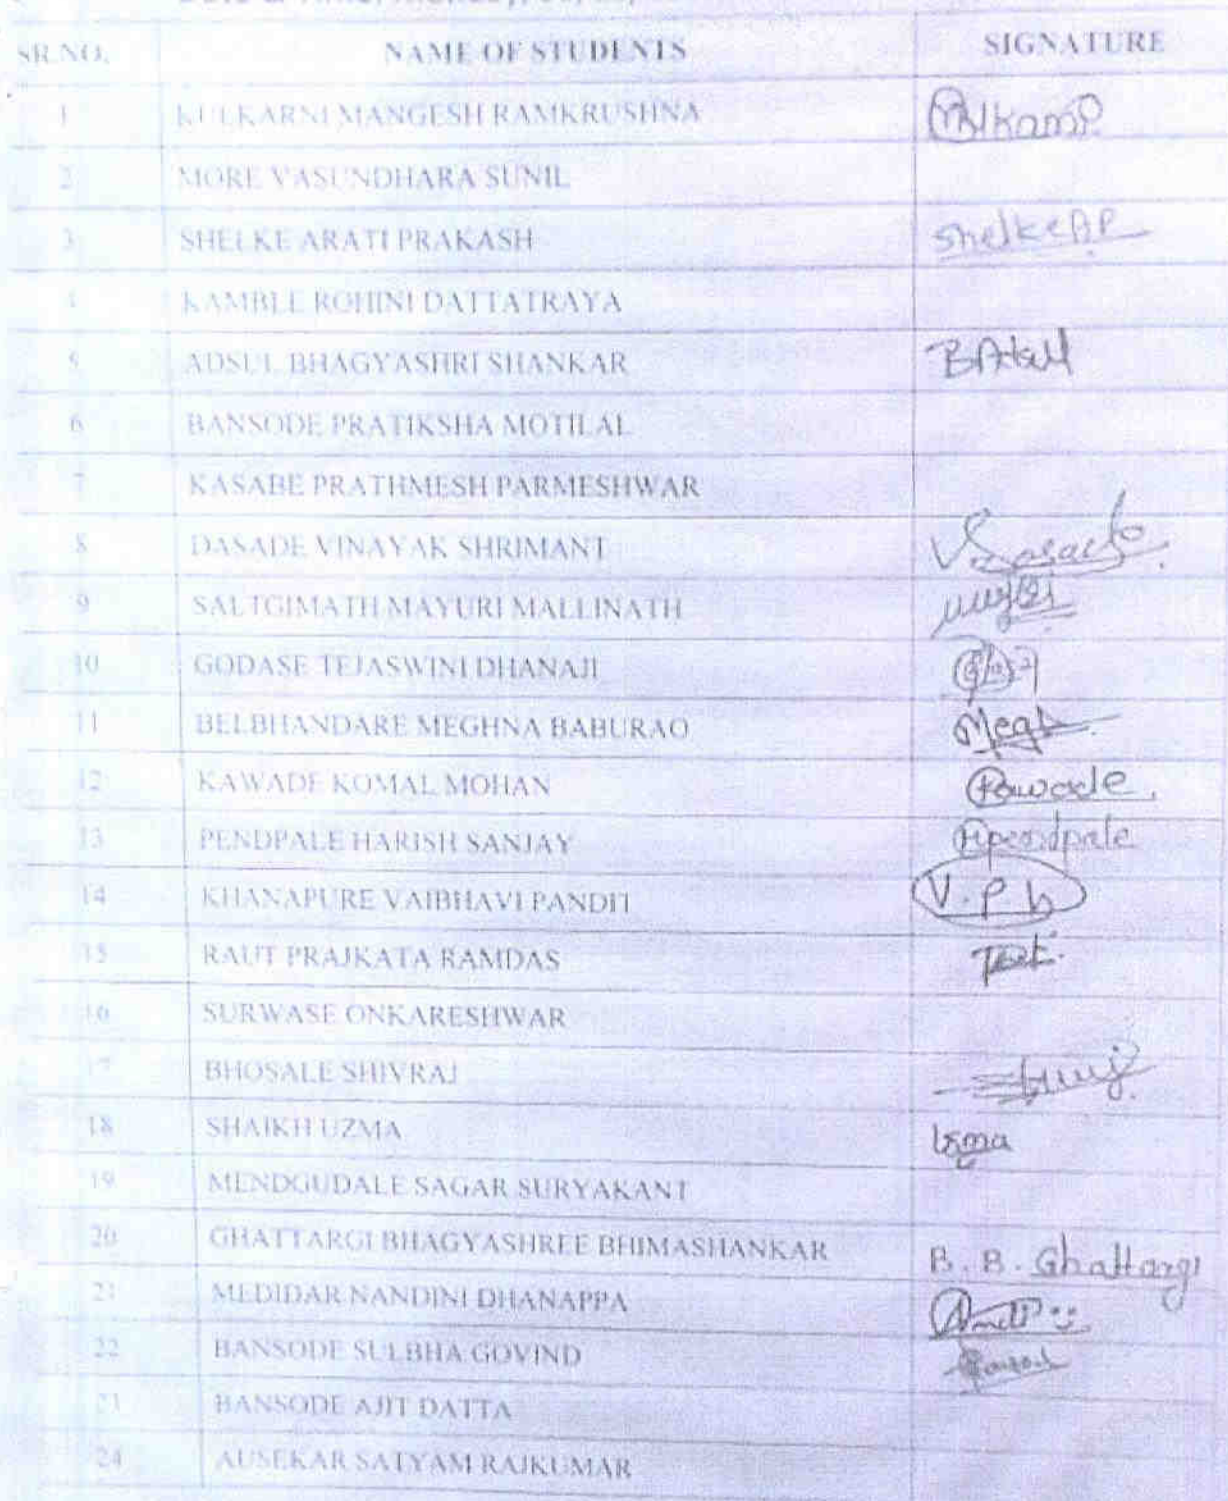 SR.NO. NAME OF STUDENTS SIGNATURE
1 KULKARNI MANGESH RAMKRUSHNA
2 MORE VASUNDHARA SUNIL
3 SHELKE ARATI PRAKASH ShelkeAP
4 KAMBLE ROHINI DATTATRAYA
5 ADSUL BHAGYASHRI SHANKAR
6 BANSODE PRATIKSHA MOTILAL
7 KASABE PRATHMESH PARMESHWAR
8 DASADE VINAYAK SHRIMANT
9 SALTGIMATH MAYURI MALLINATH
10 GODASE TEJASWINI DHANAJI
11 BELBHANDARE MEGHNA BABURAO
12 KAWADE KOMAL MOHAN Kawade
13 PENDPALE HARISH SANJAY Hpendpale
14 KHANAPURE VAIBHAVI PANDIT V.P.
15 RAUT PRAJKATA RAMDAS
16 SURWASE ONKARESHWAR
17 BHOSALE SHIVRAJ
18 SHAIKH UZMA
19 MENDGUDALE SAGAR SURYAKANT
20 GHATTARGI BHAGYASHREE BHIMASHANKAR B. B. Ghattargi
21 MEDIDAR NANDINI DHANAPPA
22 BANSODE SULBHA GOVIND
23 BANSODE AJIT DATTA
24 AUSEKAR SATYAM RAJKUMAR